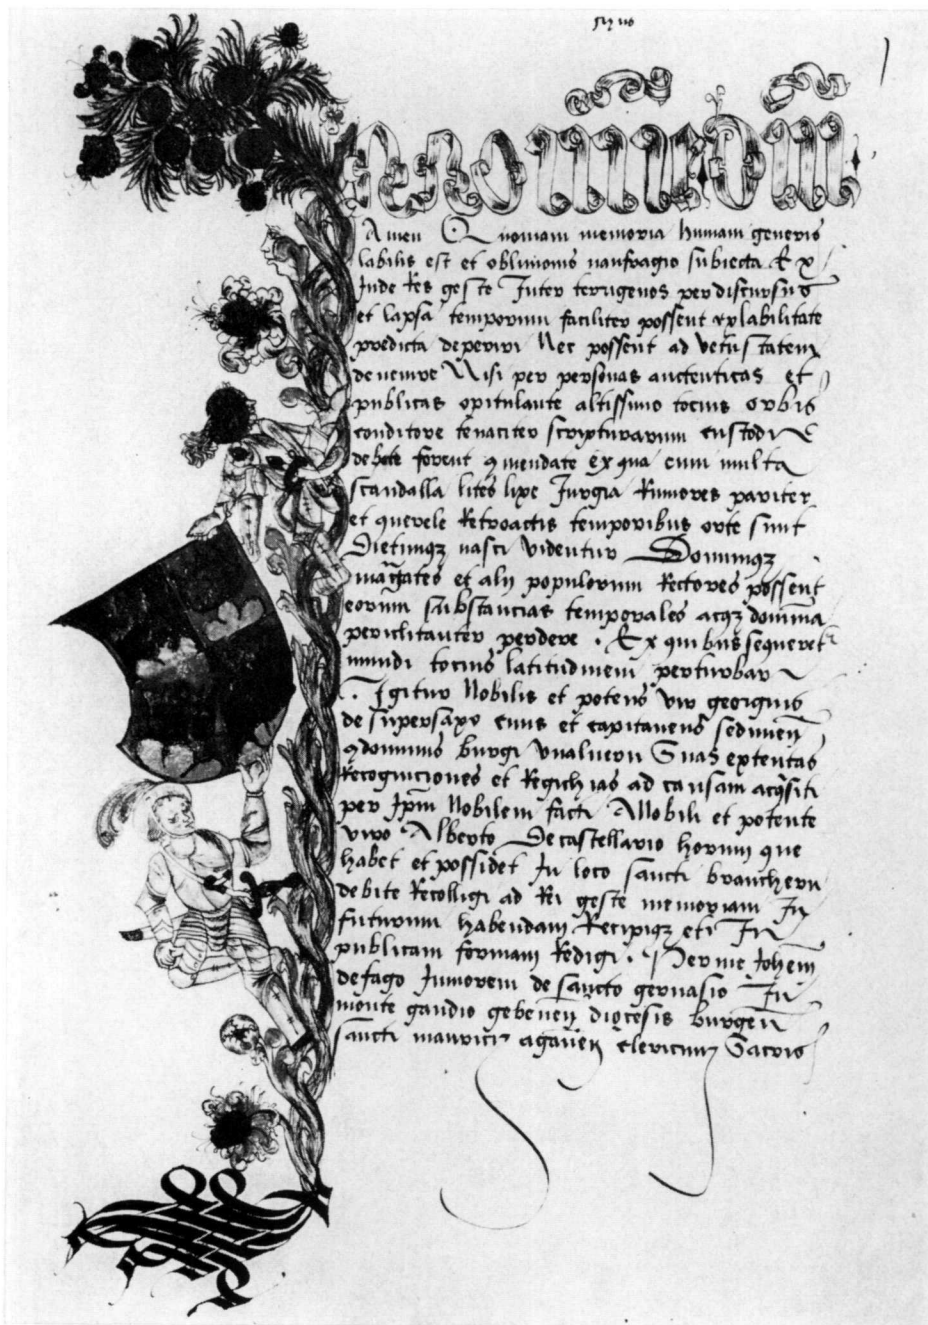 Amen Quoniam memoria humani generis
labilis est et oblivionis naufragio subiecta Ex
Inde Res geste Inter terrigenos per discursus
et lapsa temporum faciliter possent ex labilitate
predicta deperiri Nec possent ad vetustatem
devenire Nisi per personas auctenticas et
publicas opitulante altissimo tocius orbis
conditore tenaciter scripturarum custodi
debite forent 9mendate Ex qua cum multa
scandalla lites lixe Jurgia Rumores pariter
et querele Retroactis temporibus orte sunt
Dietimqz nasci videntur Dominiqz
magates et alii populorum Rectores possent
eorum substancias temporales acqz domina
periclitanter perdere . Ex quibus sequeret
mundi tocius latitudinem perturbari
Igitur Nobilis et potens vir georgius
de supersaxo civis et capitaneus sedunen
9dominus burgi Suas extentas
Recogniciones et ad causam acqsiti
per Ipm Nobilem facti A Nobili et potente
viro Alberto De castellario horum que
habet et possidet In loco sancti brancherii
debite Recolligi ad Rei geste memoriam In
futurum habendam Recipiqz eti In
publicam formam Redigi . Per me Johem
de fago Juniorem de sancto gervasio In
monte gaudio gebenen diocesis burgen
sancti mauricii agaunen clericum Sacris